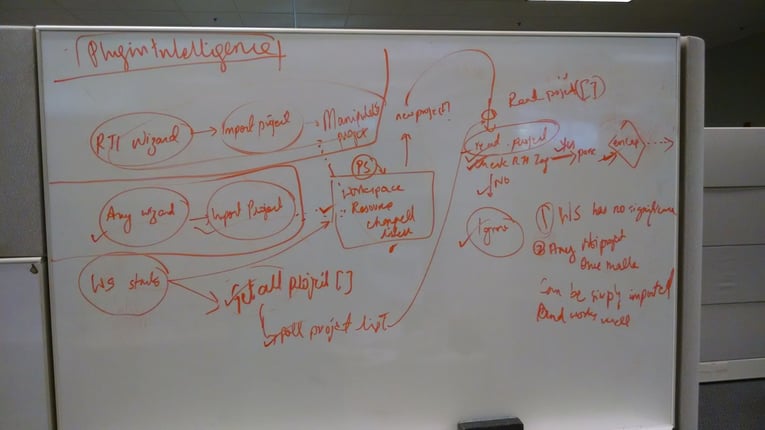 Plugin Intelligence
RTI Wizard
Import project
Manipulate
project
new project[]
Read project[]
Read project
check RTI Tag
Yes
parse
NO
Ignore
PS
Workspace
Resource
changed
listener
Any wizard
Import Project
WS starts
Get all project []
poll project list
① WS has no significance
② Any project
Can be simply imported
and works
well